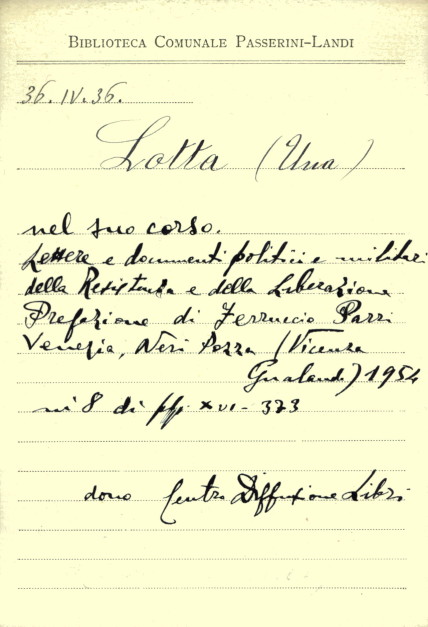 BIBLIOTECA COMUNALE PASSERINI-LANDI
36.IV.36.
Lotta (Una)
nel suo corso.
Lettere e documenti politici e militari
della Resistenza e della Liberazione
Prefazione di Ferruccio Parri
Venezia, Neri Pozza (Vicenza
Gualandi) 1954
in 8 di pp. XVI-373
dono Centro Diffusione Libri